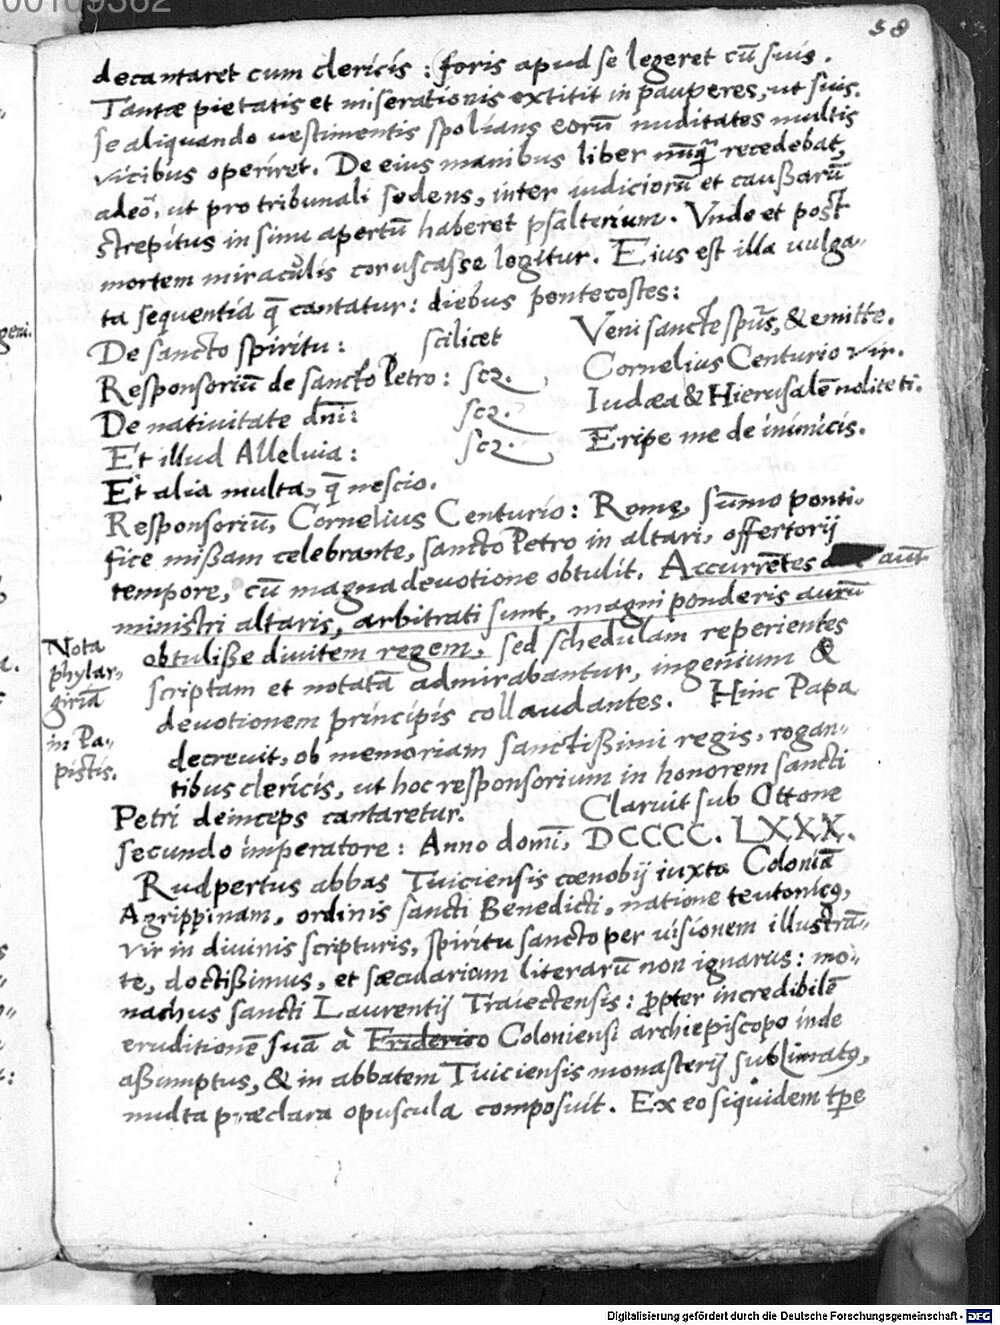 00109362
58
decantaret cum clericis : foris apud se legeret cū suis .
Tantæ pietatis et miserationis extitit in pauperes, ut suis
se aliquando uestimentis spolians eorū nuditates multis
vicibus operiret. De eius manibus liber nūq̄ recedebat,
adeo, ut pro tribunali sedens, inter iudiciorū et caußarū
strepitus in sinu apertū haberet psalterium. Vnde et post
mortem miraculis coruscasse legitur. Eius est illa uulga-
ta sequentia q̄ cantatur: diebus pentecostes:
De sancto spiritu : scilicet Veni sancte spūs, & emitte.
Responsoriū de sancto Petro : scz. Cornelius Centurio vir.
De nativitate dn̄i: scz. Iudæa & Hierusalē nolite ti.
Et illud Alleluia : scz. Eripe me de inimicis.
Et alia multa, q̄ nescio.
Responsoriū, Cornelius Centurio : Romę, sūmo ponti-
fice mißam celebrante, sancto Petro in altari, offertorij
tempore, cū magna deuotione obtulit. Accurrētes aūt
ministri altaris, arbitrati sunt, magni ponderis aurū
obtuliße diuitem regem, sed schedulam reperientes
scriptam et notatā admirabantur, ingenium &
deuotionem principis collaudantes. Hinc Papa
decreuit, ob memoriam sanctißimi regis, rogan-
tibus clericis, ut hoc responsorium in honorem sancti
Petri deinceps cantaretur. Claruit sub Ottone
secundo imperatore : Anno domī, DCCCC. LXXX.
Nota
phylar-
giriā
in Pa-
pistis.
Rudpertus abbas Tuiciensis cœnobij iuxta Coloniā
Agrippinam, ordinis sancti Benedicti, natione teutonicꝰ,
vir in diuinis scripturis, spiritu sancto per uisionem illustrā-
te, doctißimus, et sæculariam literarū non ignarus : mo-
nachus sancti Laurentij Traiectensis : ꝓpter incredibilē
eruditionē suā à Friderico Coloniensi archiepiscopo inde
aßumptus, & in abbatem Tuiciensis monasterij sublimatꝰ,
multa præclara opuscula composuit. Ex eo siquidem tp̄e
geni.
Digitalisierung gefördert durch die Deutsche Forschungsgemeinschaft - DFG